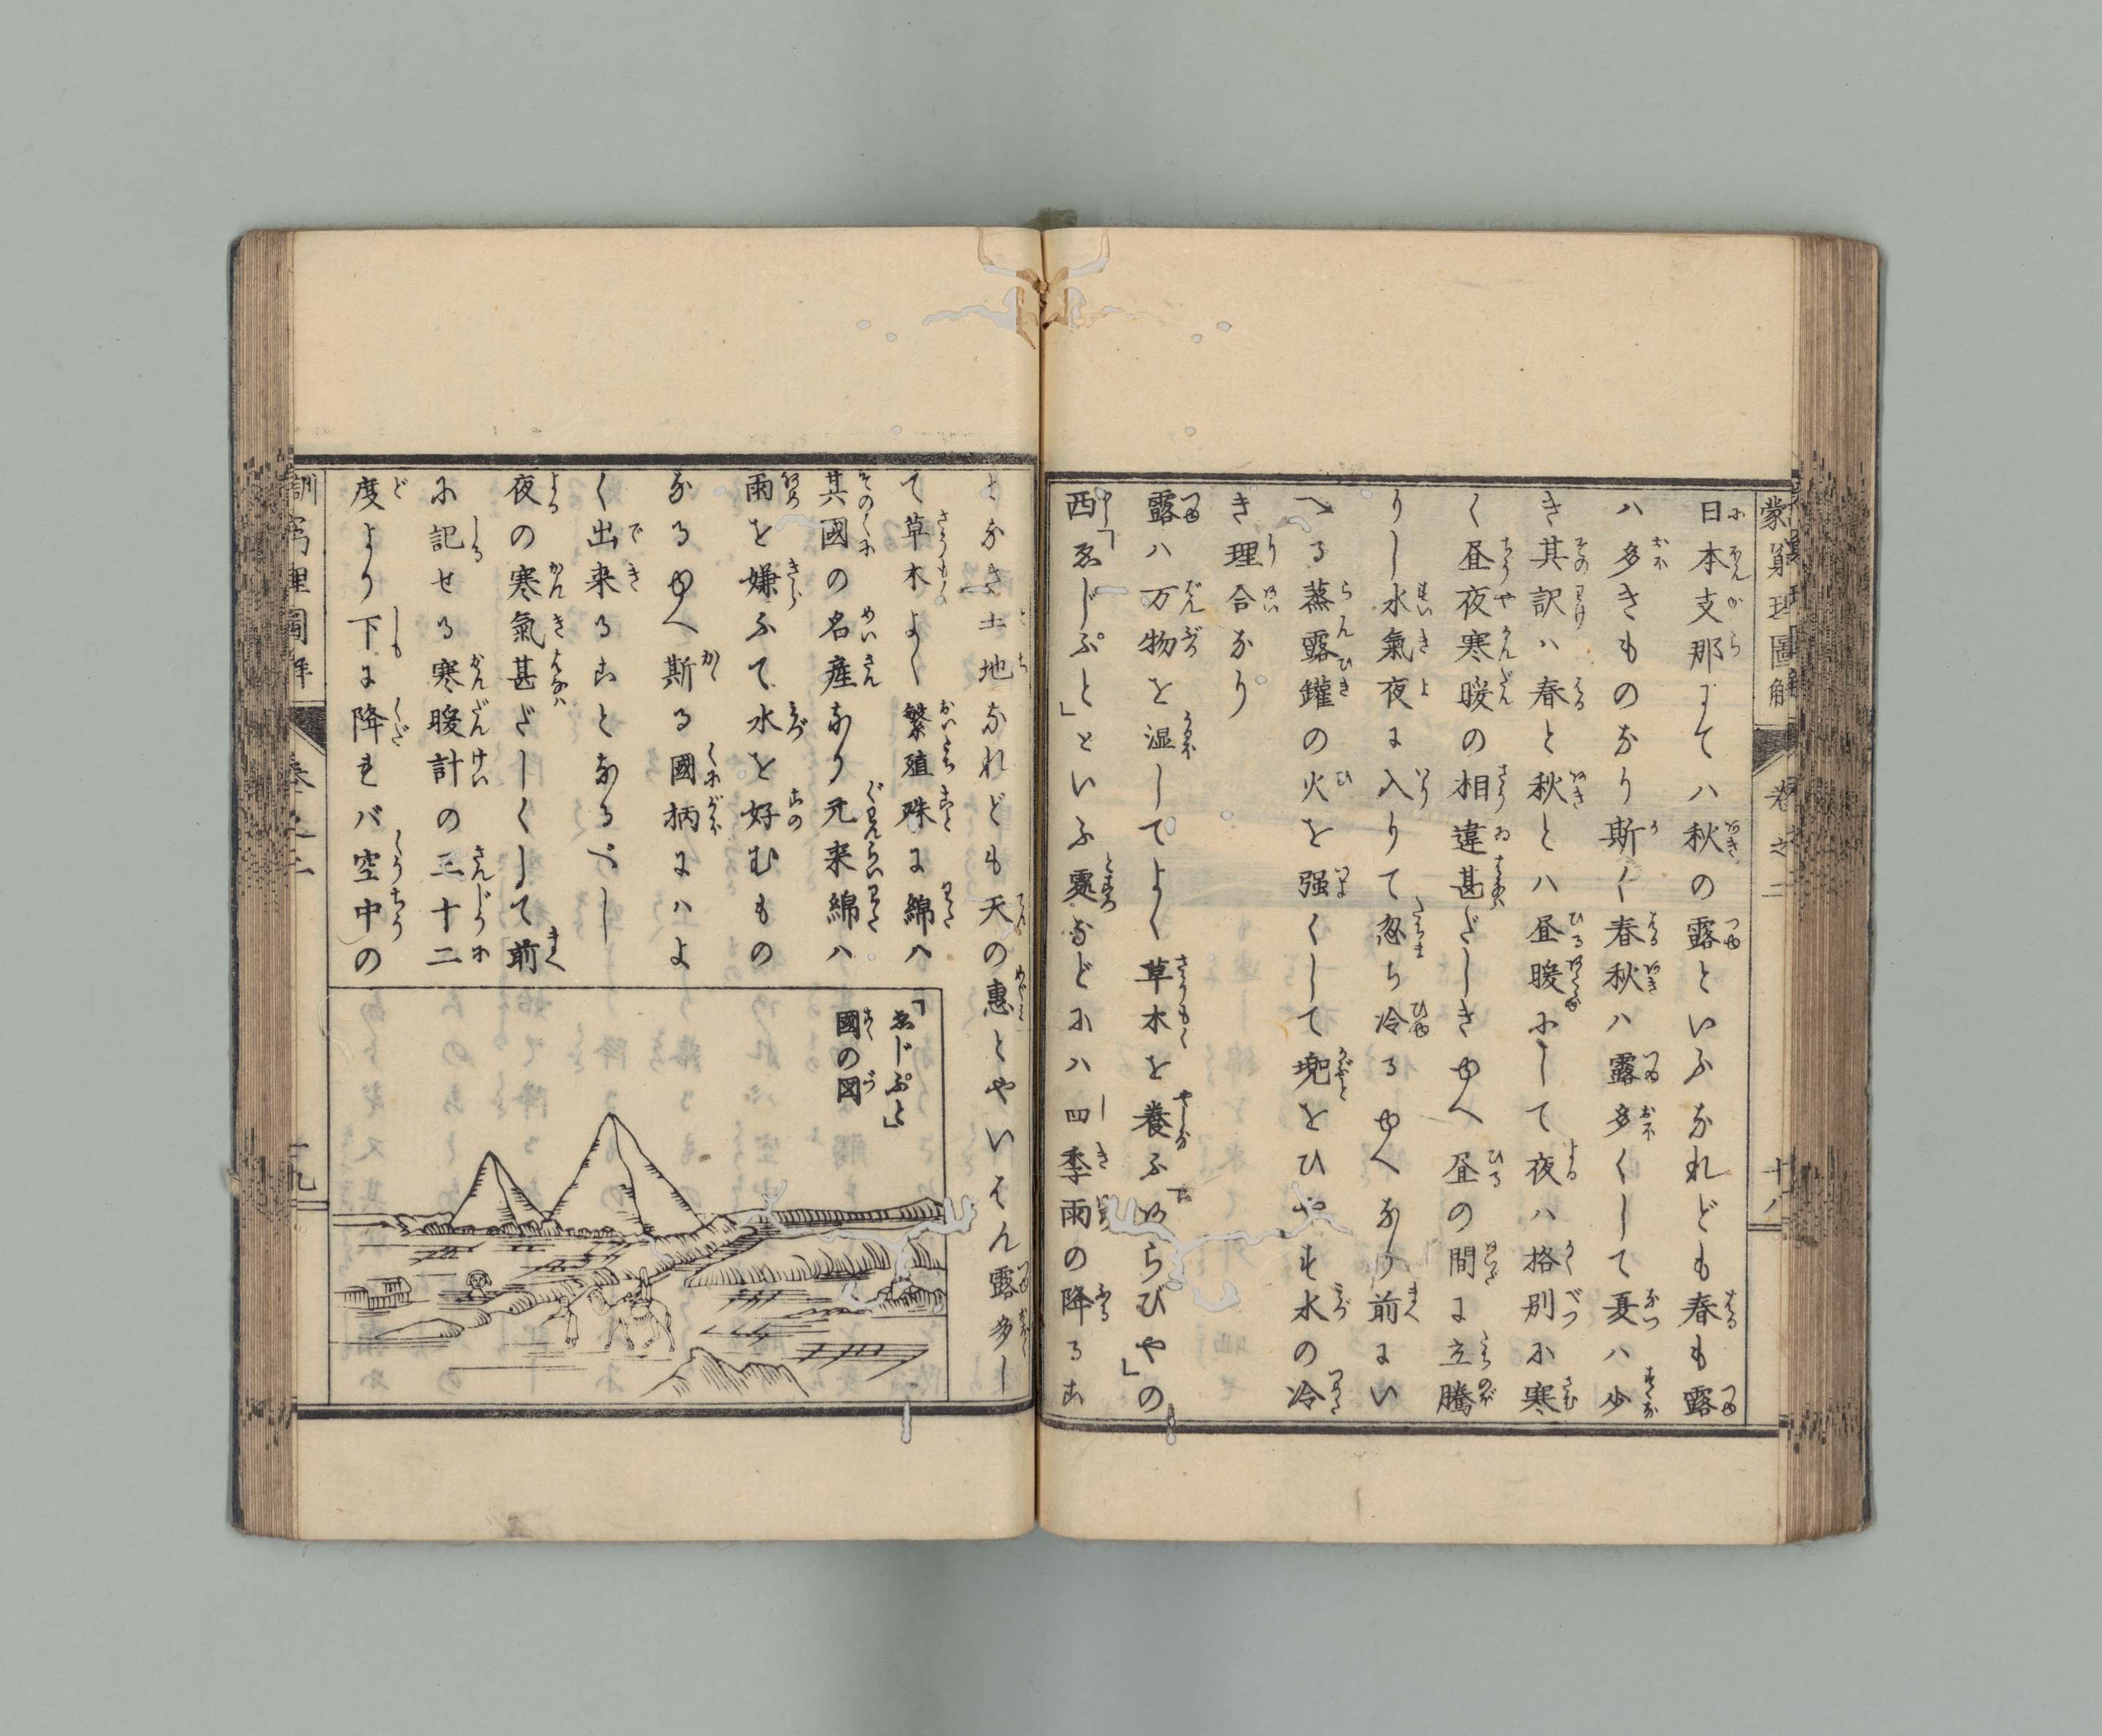 日本支那にてハ秋の露といふなれども春も露
ハ多きものなり斯く春秋ハ露多くして夏ハ少
き其訳ハ春と秋とハ昼暖にして夜ハ格別に寒
く昼夜寒暖の相違甚だしきゆへ昼の間に立騰
りし水氣夜に入りて忽ち冷るゆへなり前にい
へる蒸露鑵の火を强くして兜をひやす水の冷
き理合なり
露ハ万物を湿してよく草木を養ふ「あらびや」の
西「ゑじぷと」といふ處などにハ四季雨の降るこ
となき土地なれども天の惠とやいはん露多し
て草木よく繁殖殊に綿ハ
其國の名産なり元来綿ハ
雨を嫌ふて水を好むもの
なるゆへ斯る國柄にハよ
く出来ることなるべし
夜の寒氣甚だしくして前
に記せる寒暖計の三十二
度より下に降れバ空中の
「ゑじぷと」
國の図
卷之二
十八
十九